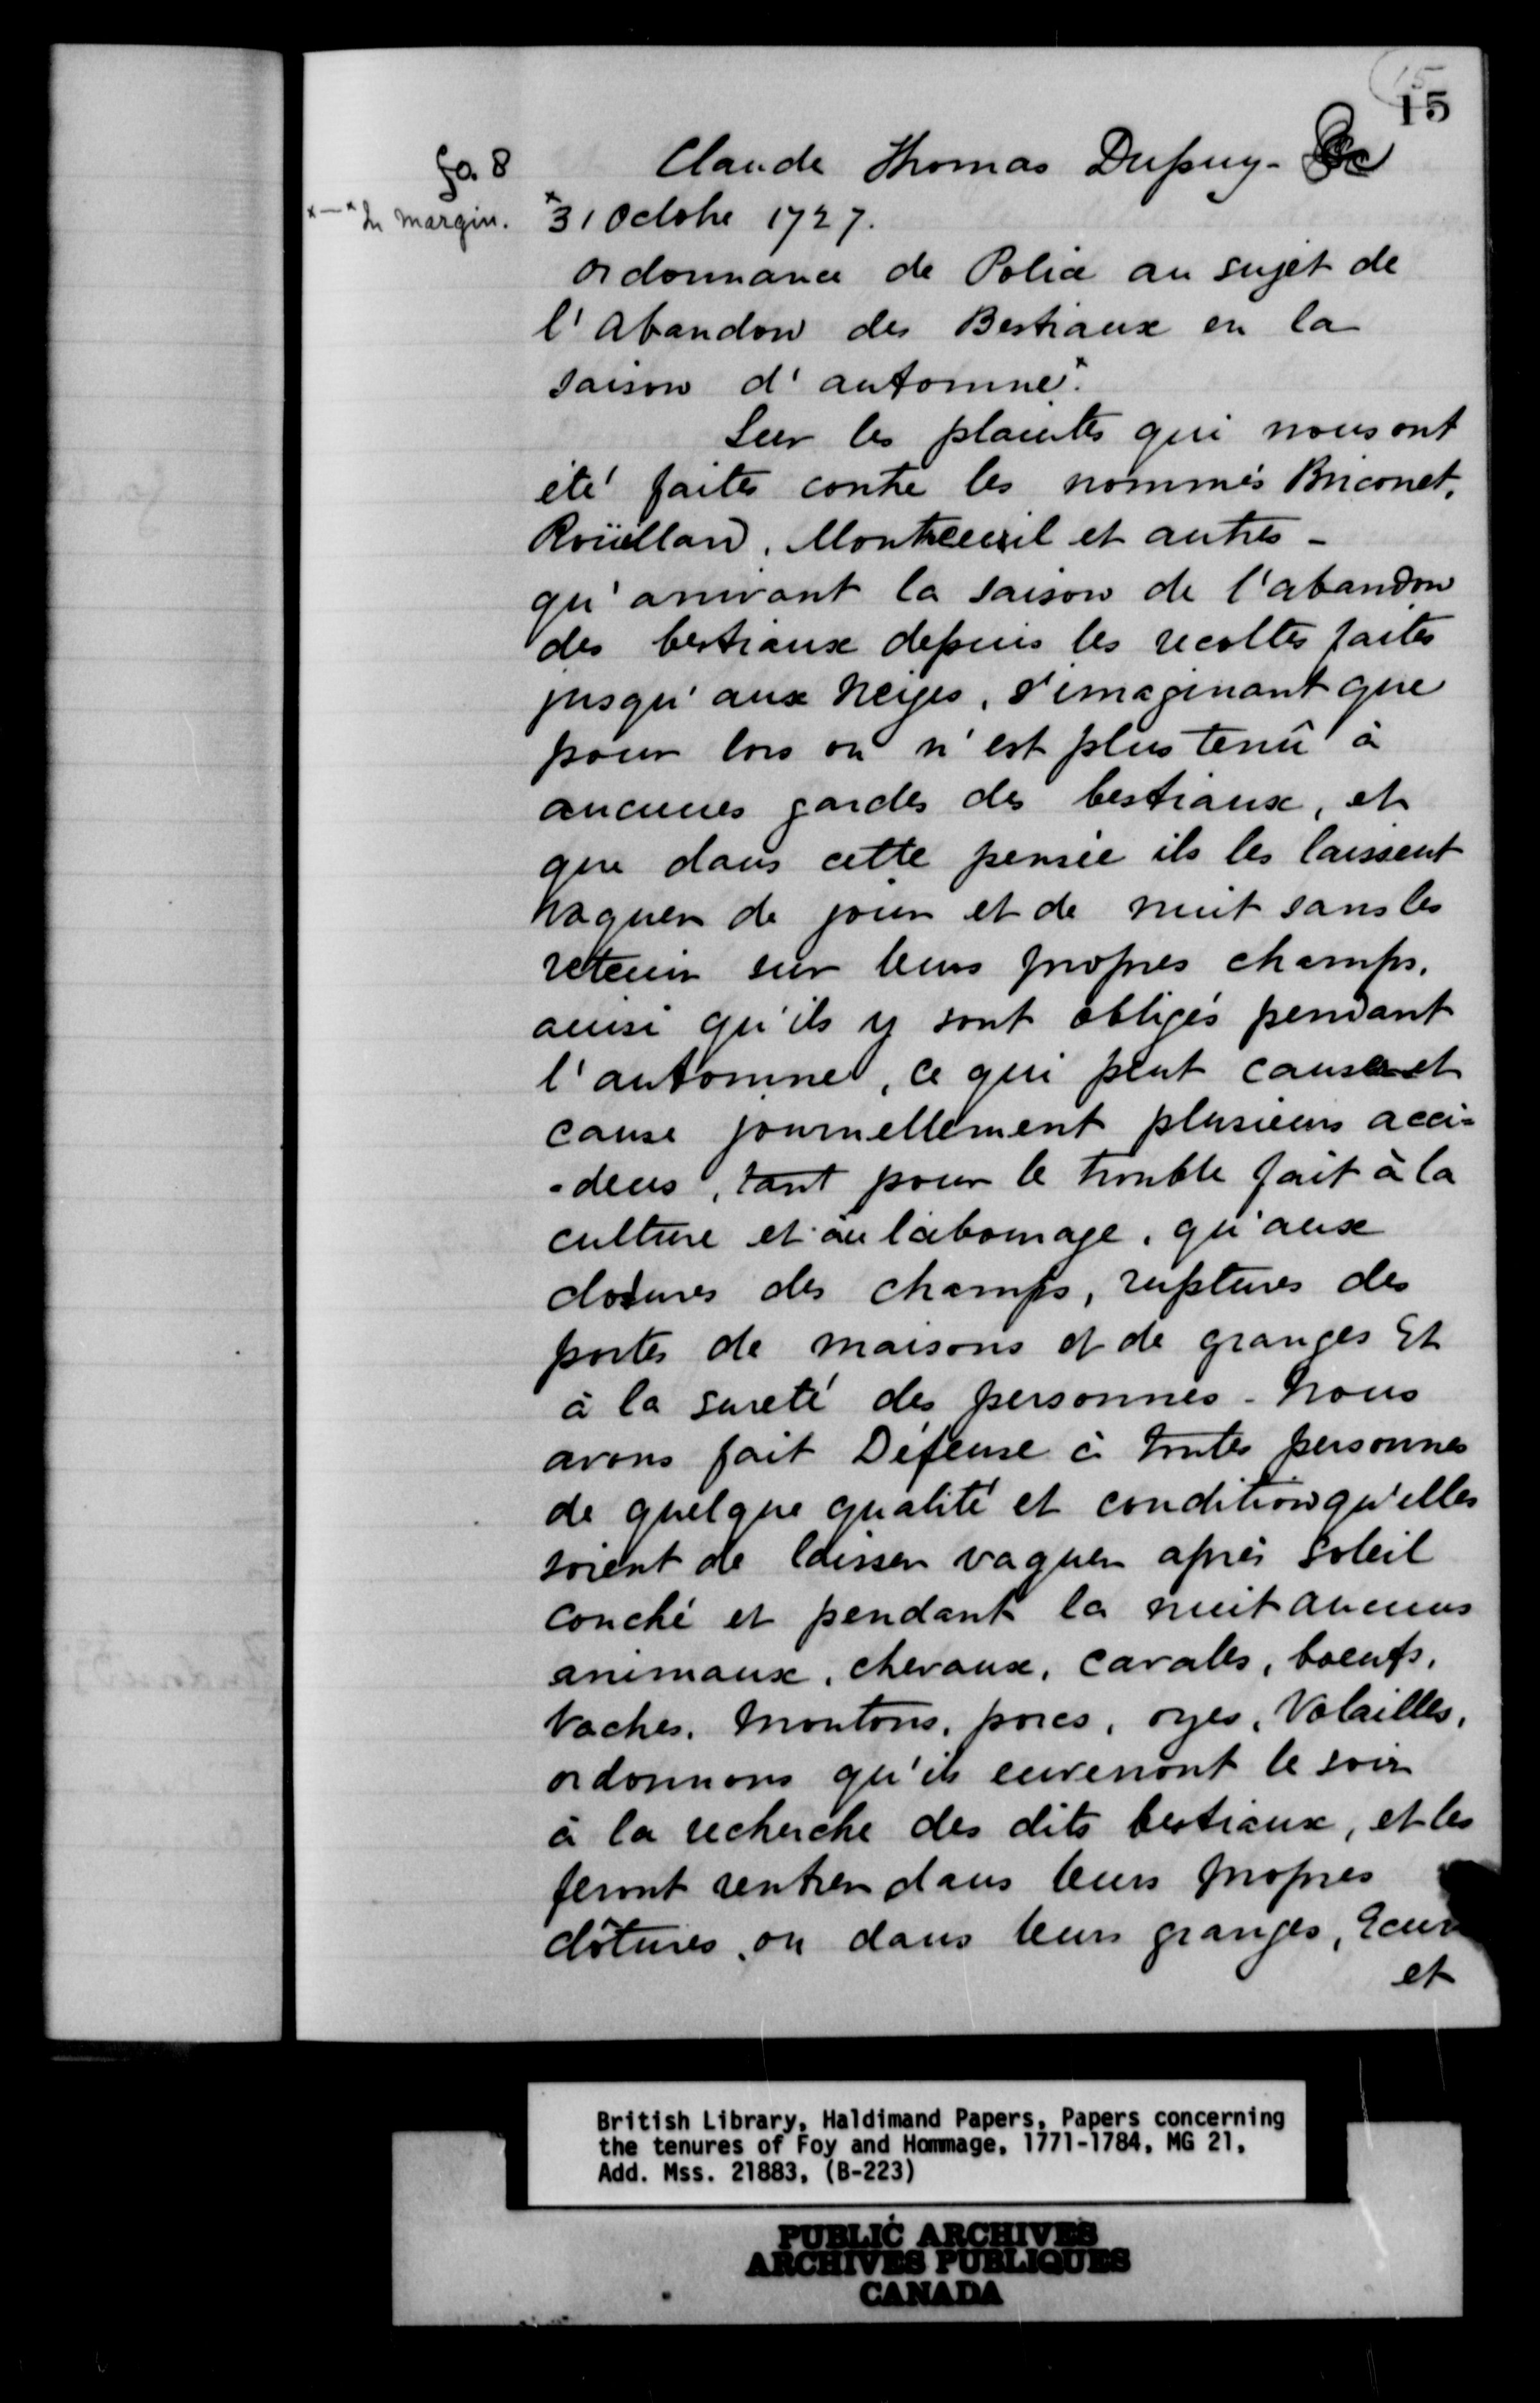 15
15
fo. 8
Claude Thomas Dupuy - &c
x—x In margin.
x31 Octobre 1727.
ordonnance de Police au sujet de
l'Abandon des Bestiaux en la
saison d'automne.x
Sur les plaintes qui nous ont
été faites contre les nommés Briconet,
Roüillard, Montreuil et autres -
qu'arrivant la saison de l'abandon
des bestiaux depuis les recoltes faites
jusqu'aux Neiges, s'imaginant que
pour lors on n'est plus tenû à
aucunes gardes des bestiaux, et
que dans cette pensée ils les laissent
vaguer de jour et de nuit sans les
retenir sur leurs propres champs,
ainsi qu'ils y sont obligés pendant
l'automne, ce qui peut causer et
cause journellement plusieurs acci=
-dens, tant pour le trouble fait à la
culture et au labourage, qu'aux
clotures des champs, ruptures des
portes de maisons et de granges Et
à la sureté des personnes - Nous
avons fait Défense à toutes personnes
de quelque qualité et condition qu'elles
soient de laisser vaguer après soleil
couché et pendant la nuit aucuns
animaux, chevaux, cavales, boeufs,
Vaches, Moutons, porcs, oyes, Volailles,
ordonnons qu'ils enverront le soir
à la recherche des dits bestiaux, et les
feront rentrer dans leurs propres
clôtures, ou dans leurs granges,
et
British Library, Haldimand Papers, Papers concerning
the tenures of Foy and Hommage, 1771-1784, MG 21,
Add. Mss. 21883, (B-223)
PUBLIC ARCHIVES
ARCHIVES PUBLIQUES
CANADA